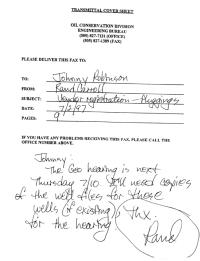 TRANSMITTAL COVER SHEET
OIL CONSERVATION DIVISION
ENGINEERING BUREAU
(505) 827-7131 (OFFICE)
(505) 827-1389 (FAX)
PLEASE DELIVER THIS FAX TO:
TO: Johnny Robinson
FROM: Rand Carroll
SUBJECT: Vendor registration - Pluggings
DATE: 7/2/97
PAGES: 9
IF YOU HAVE ANY PROBLEMS RECEIVING THIS FAX, PLEASE CALL THE
OFFICE NUMBER ABOVE.
Johnny:
The Geo hearing is next
Thursday 7/10. I'll need copies
of the well files for these
wells (if existing), Thx.
for the hearing
Rand